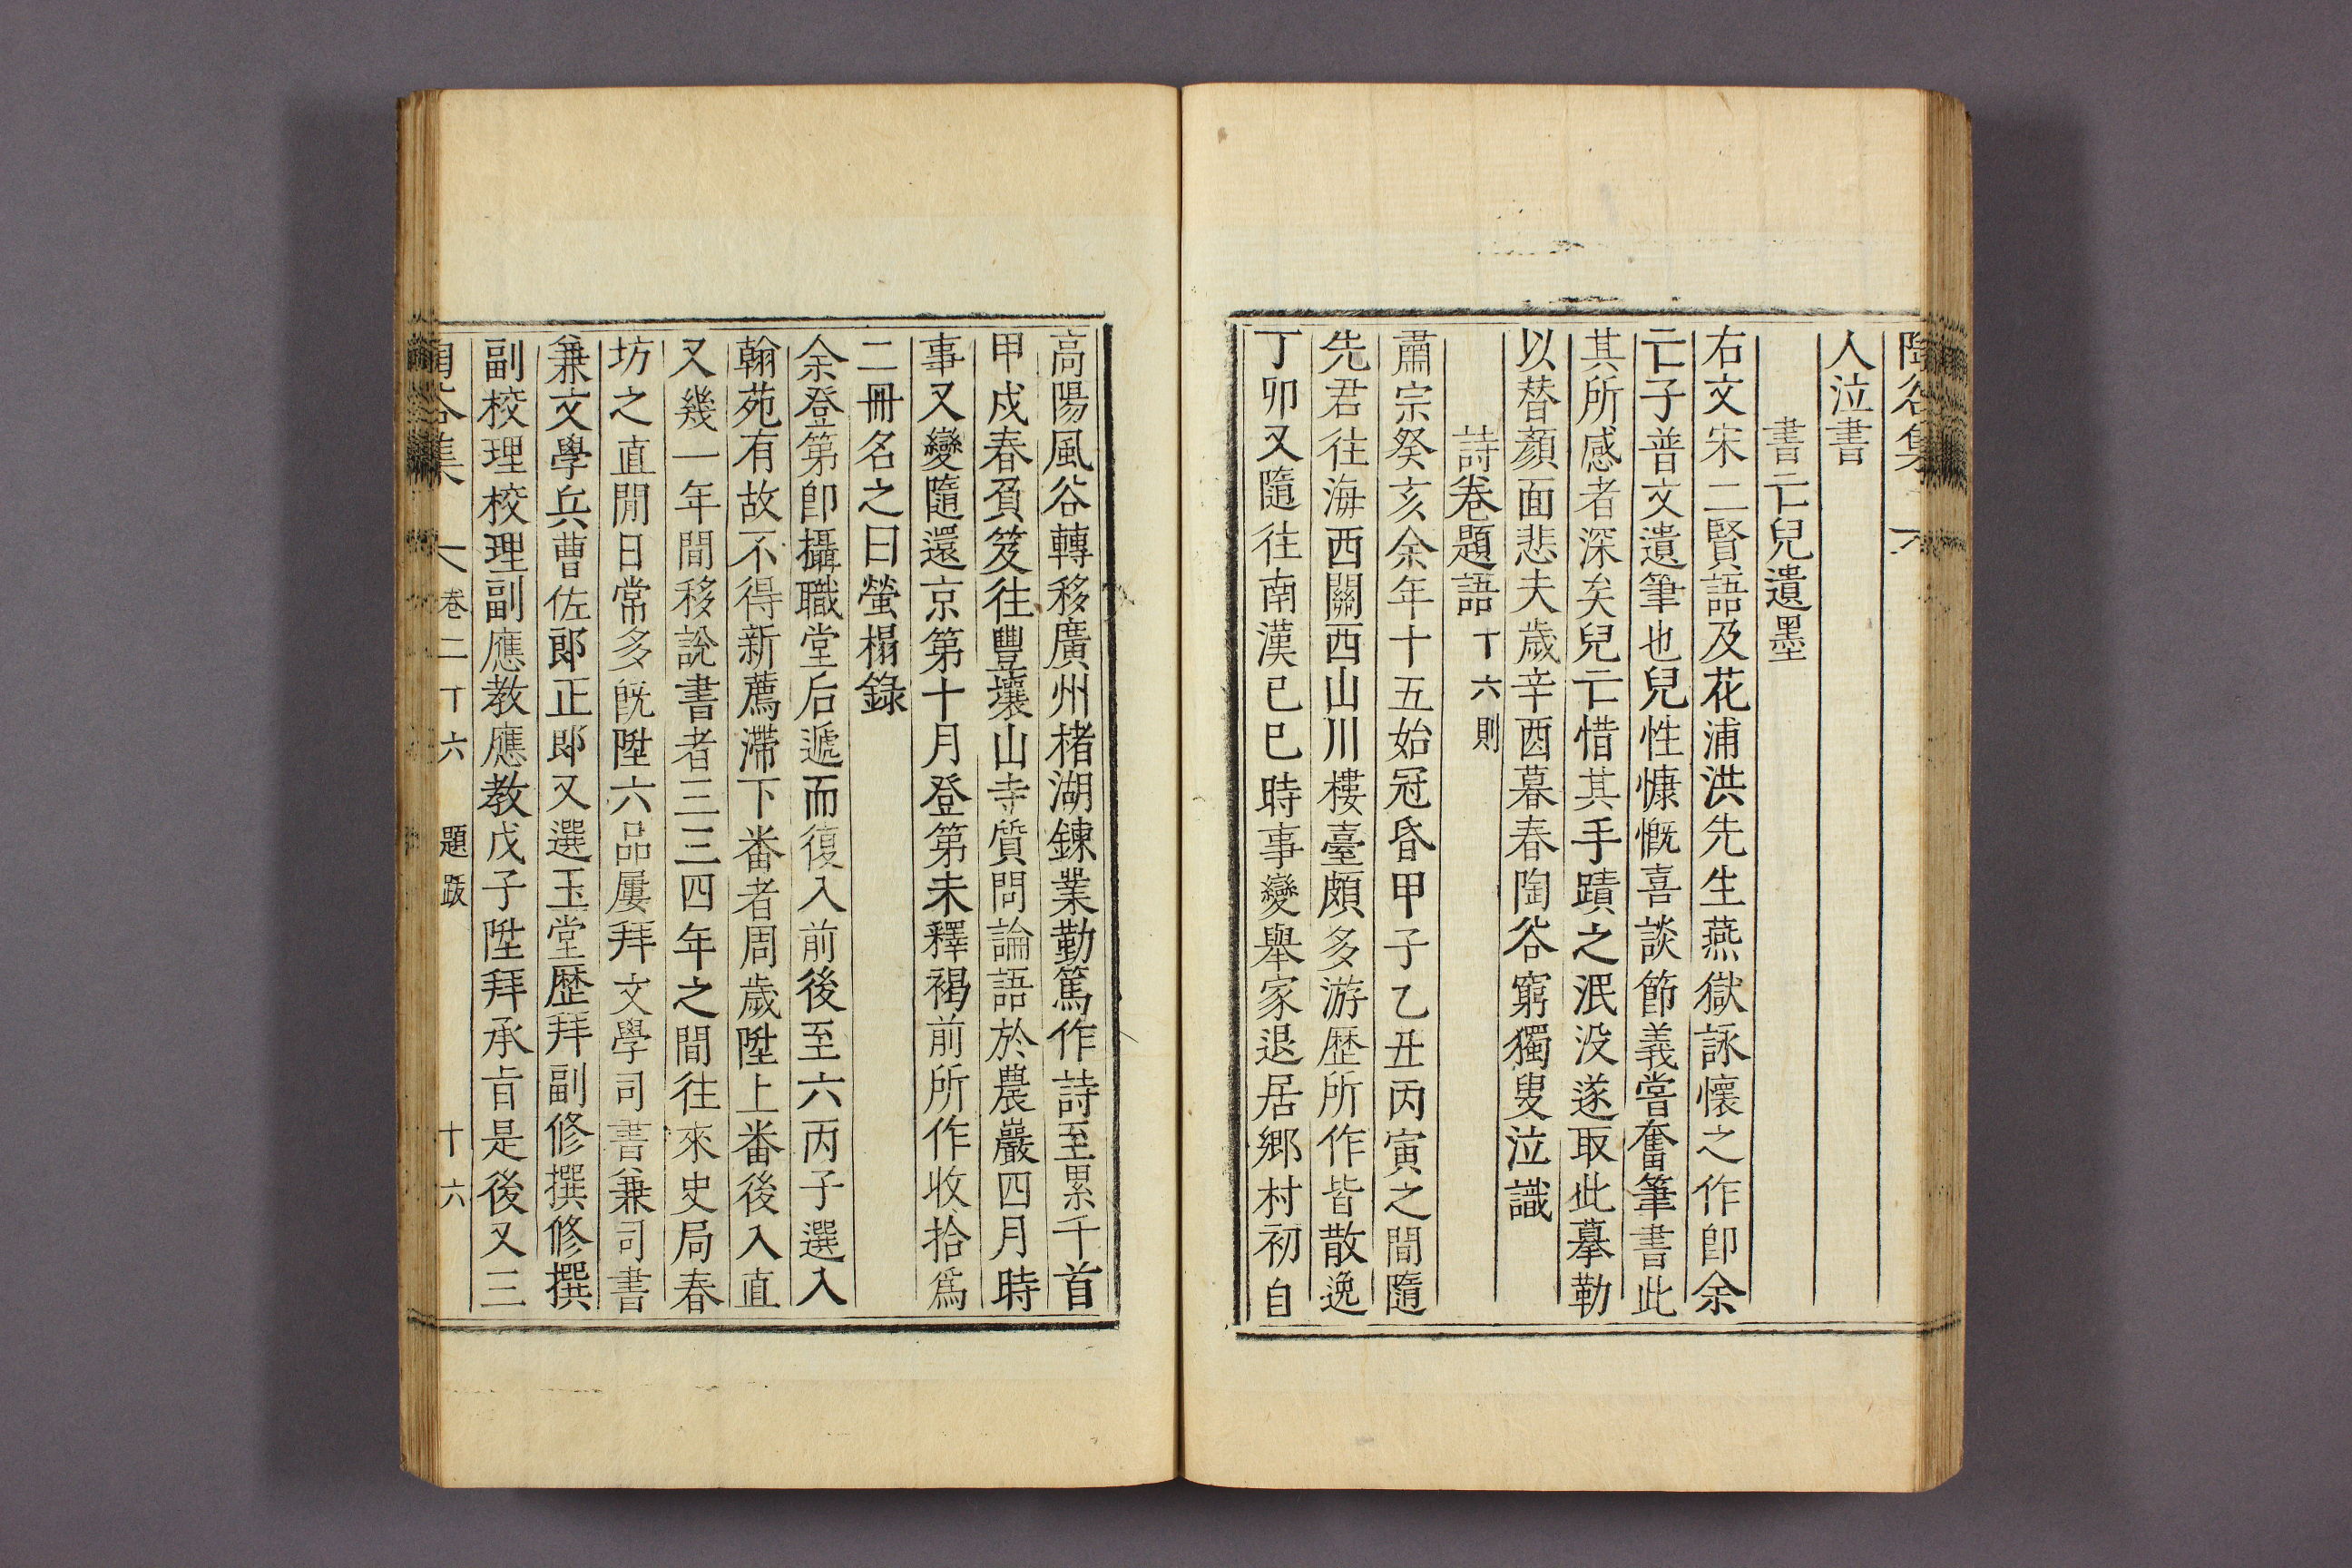 陶谷集
人泣書
書亡兒遺墨
右文宋二賢語及花浦洪先生燕獄詠懷之作卽余
亡子普文遺筆也兒性慷慨喜談節義嘗奮筆書此
其所感者深矣兒亡惜其手蹟之泯没遂取此摹勒
以替顏面悲夫歲辛酉暮春陶谷窮獨叟泣識
詩卷題語丁六則
肅宗癸亥余年十五始冠昏甲子乙丑丙寅之間隨
先君往海西關西山川樓臺頗多游歷所作皆散逸
丁卯又隨往南漢己巳時事變舉家退居鄉村初自
高陽風谷轉移廣州楮湖鍊業勤篤作詩至累千首
甲戌春負笈往豐壤山寺質問論語於農巖四月時
事又變隨還京第十月登第未釋褐前所作收拾爲
二冊名之曰螢榻錄
余登第卽攝職堂后遞而復入前後至六丙子選入
翰苑有故不得新薦滯下番者周歲陞上番後入直
又幾一年間移說書者三三四年之間往來史局春
坊之直閒日常多旣陞六品屢拜文學司書兼司書
兼文學兵曹佐郞正郞又選玉堂歷拜副修撰修撰
副校理校理副應教應教戊子陞拜承旨是後又三
陶谷集 卷二丁六 題跋 十六